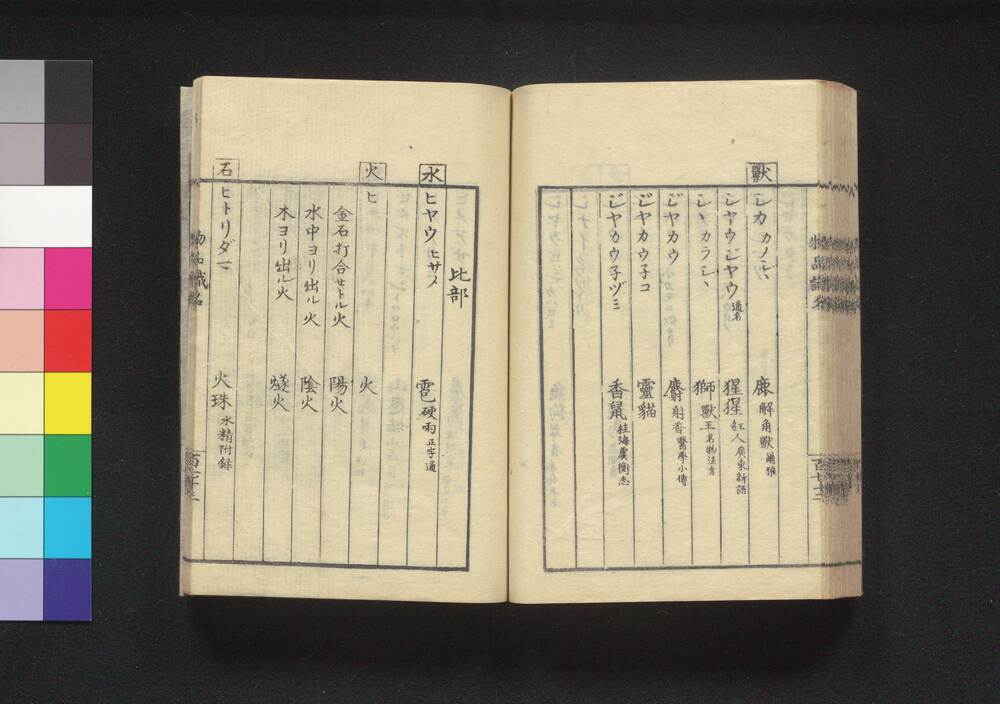 獸
シカ カノシヽ 鹿 解角獸 爾雅
シヤウジヤウ 通名 猩猩 紅人 廣東新語
シヽ カラシヽ 獅 獸王 名物法言
ジヤカウ 麝 射香 醫學小傳
ジヤカウ子コ 靈貓
ジヤカウ子ヅミ 香鼠 桂海虞衡志
比部
水
ヒヤウ ヒサメ 雹 硬雨 正字通
火
ヒ 火
金石打合セトル火 陽火
水中ヨリ出ル火 陰火
木ヨリ出ル火 燧火
石
ヒトリダマ 火珠 水精附録
物品識名